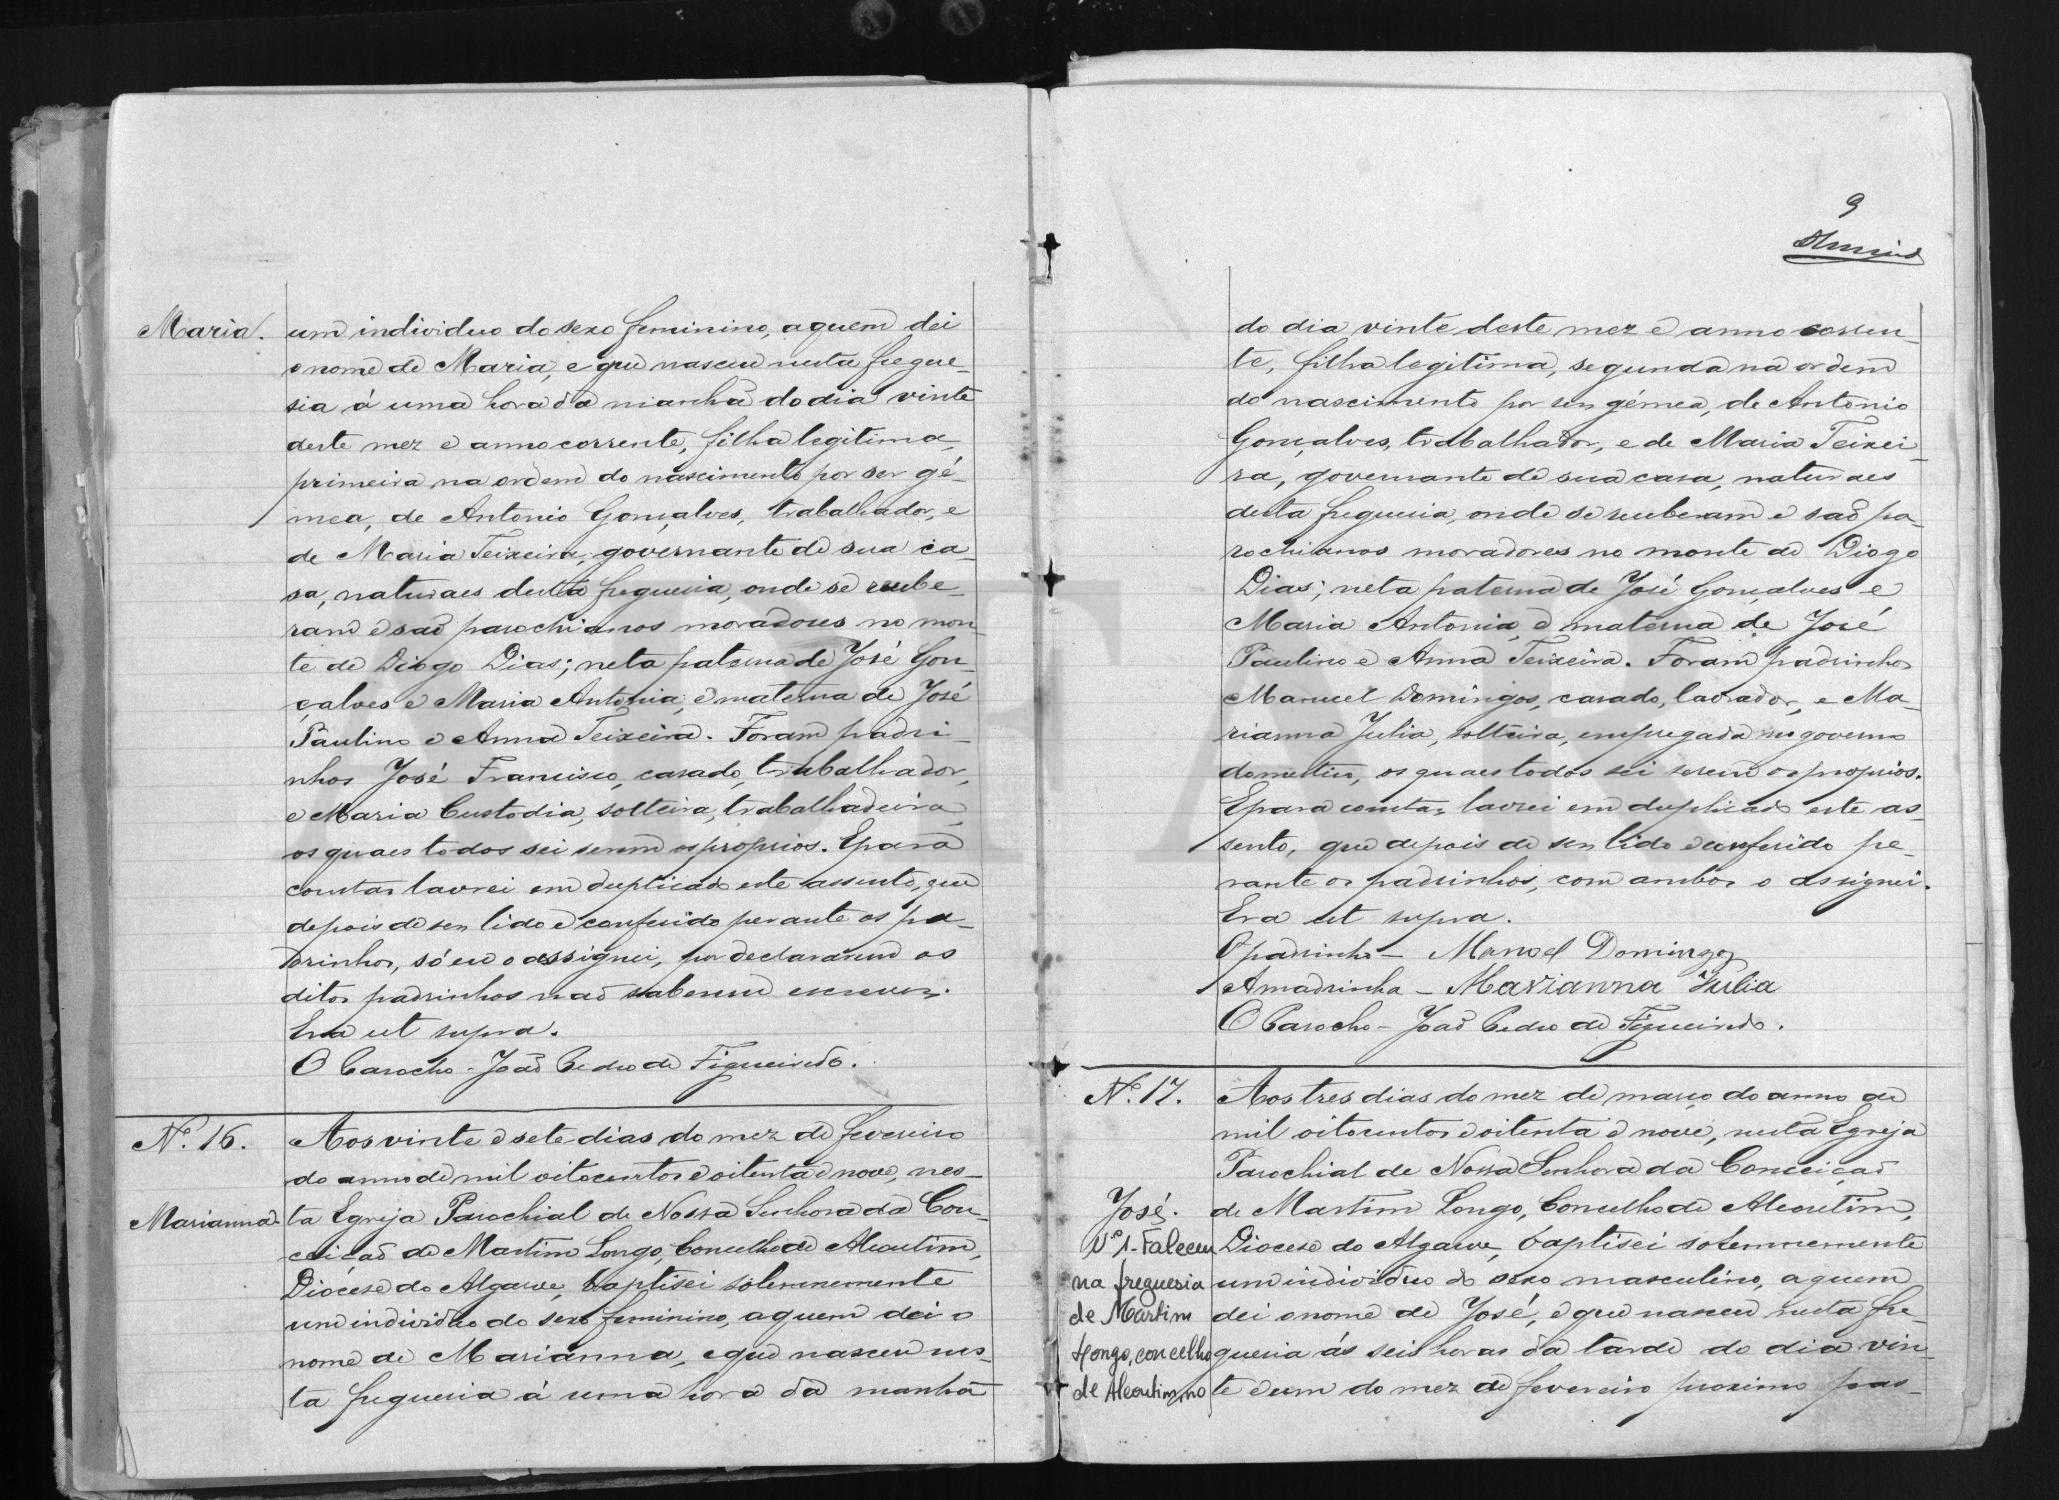 Maria. um individuo do sexo feminino, a quem dei
o nome de Maria, e que nasceu nesta fregue-
sia á uma hora da manhã do dia vinte
deste mez e anno corrente, filha legitima,
primeira na ordem do nascimento por ser gé-
mea, de Antonio Gonçalves, trabalhador, e
de Maria Teixeira, governante de sua ca-
sa, naturaes desta freguesia, onde se recebe-
ram e são parochianos moradores no mon-
te de Diogo Dias; neta paterna de José Gon-
çalves e Maria Antonia, e materna de José
Paulino e Anna Teixeira. Foram padri-
nhos José Francisco, casado, trabalhador,
e Maria Custodia, solteira, trabalhadeira,
os quaes todos sei serem os proprios. E para
constar lavrei em duplicado este assento, que
depois de ser lido e conferido perante os pa-
drinhos, só eu o assignei, por declararem os
ditos padrinhos não saberem escrever.
Era ut supra.
O Parocho - João Pedro de Figueiredo.
Nº. 16. Aos vinte e sete dias do mez de fevereiro
do anno de mil oitocentos e oitenta e nove, nes-
Marianna. ta Egreja Parochial de Nossa Senhora da Con-
ceição de Martim Longo, Concelho de Alcoutim,
Diocese do Algarve, baptisei solemnemente
um individuo do sexo feminino, a quem dei o
nome de Marianna, e que nasceu nes-
ta freguesia á uma hora da manhã
9
do dia vinte deste mez e anno corren-
te, filha legitima, segunda na ordem
do nascimento por ser gémea, de Antonio
Gonçalves, trabalhador, e de Maria Teixei-
ra, governante de sua casa, naturaes
desta freguesia, onde se receberam e são pa-
rochianos moradores no monte de Diogo
Dias; neta paterna de José Gonçalves e
Maria Antonia, e materna de José
Paulino e Anna Teixeira. Foram padrinhos
Manuel Domingos, casado, lavrador, e Ma-
rianna Julia, solteira, empregada no governo
domestico, os quaes todos sei serem os proprios.
E para constar lavrei em duplicado este as-
sento, que depois de ser lido e conferido pe-
rante os padrinhos, com ambos o assignei.
Era ut supra.
O padrinho - Manoel Domingos
A madrinha - Marianna Julia
O Parocho - João Pedro de Figueiredo.
Nº. 17. Aos tres dias do mez de março do anno de
mil oitocentos e oitenta e nove, nesta Egreja
Parochial de Nossa Senhora da Conceição
José. de Martim Longo, Concelho de Alcoutim,
Nº 1 - Faleceu Diocese do Algarve, baptisei solemnemente
na freguesia um individuo do sexo masculino, a quem
de Martim dei o nome de José, e que nasceu nesta fre-
Longo, concelho guesia ás seis horas da tarde do dia vin-
de Alcoutim, no te e um do mez de fevereiro proximo pas-